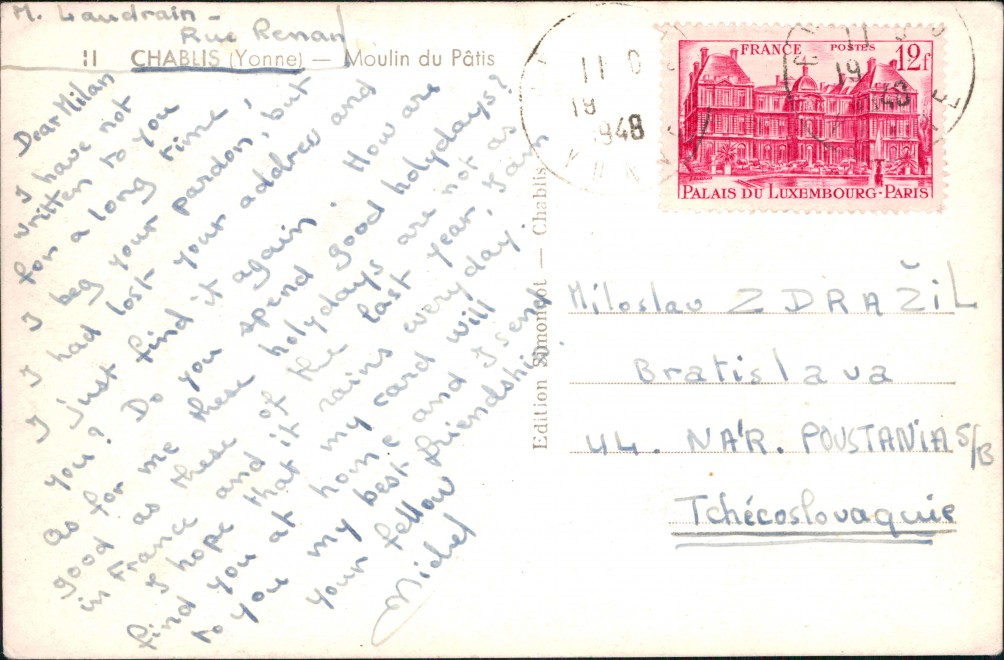 M. Laudrain -
Rue Renan
11 CHABLIS (Yonne) — Moulin du Pâtis
Dear Milan
I have not
written to you
for a long time,
I beg your pardon, but
I had lost your address and
I just find it again. How are
you? Do you spend good holydays?
As for me these holydays are not as
good as these of the last year, I am
in France and it rains every day.
I hope that my card will
find you at home and I send
to you my best friendship.
your fellow
Michel
Edition Simonnot — Chablis
11 0
19
1948
YONNE
FRANCE POSTES 12f
PALAIS DU LUXEMBOURG-PARIS
11
19
48
Miloslav ZDRAŽIL
Bratislava
44. NA'R. POUSTANIA S/B
Tchécoslovaquie